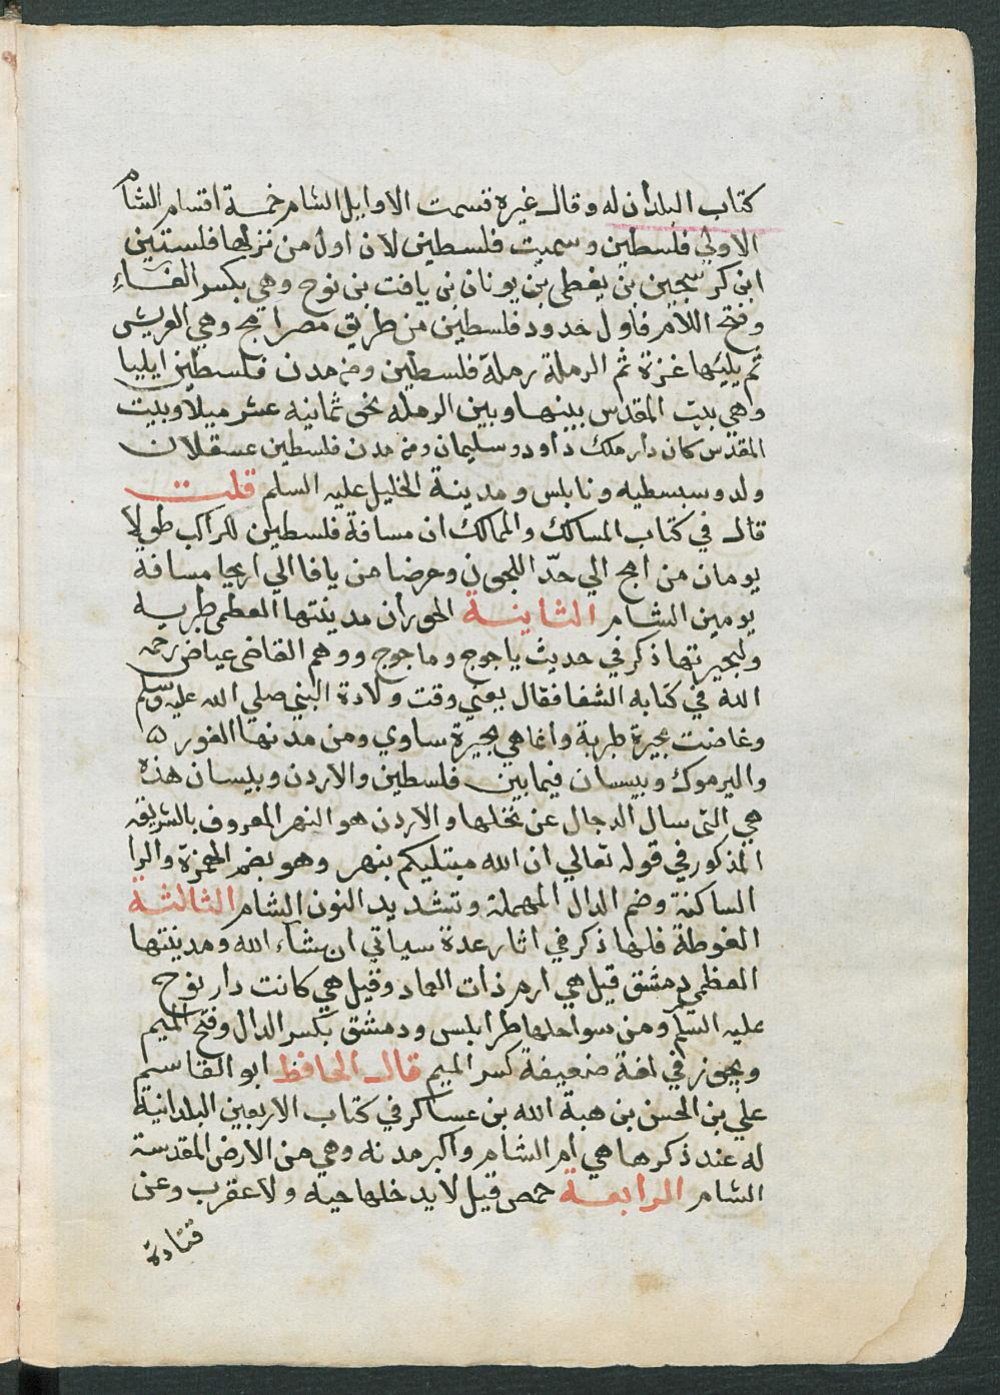 كتاب البلدان له وقال غيره قسمت الاوايل الشام خمسة اقسام الشام
الاولي فلسطين وسميت فلسطين لان اول من نزلها فلستين
ابن كرسجين بن يغطي بن يونان بن يافت بن نوح وهي بكسر الفاء
وفتح اللام فاول حدود فلسطين من طريق مصر امج وهي العريش
ثم يليها غزة ثم الرملة رملة فلسطين ومن مدن فلسطين ايليا
وهي بيت المقدس بينها وبين الرمله نحو ثمانيه عشر ميلا وبيت
المقدس كان دار ملك داود وسليمان ومن مدن فلسطين عسقلان
ولد وسبسطيه ونابلس ومدينة الخليل عليه السلم قلت
قال في كتاب المسالك والممالك ان مسافة فلسطين للراكب طولا
يومان من امج الي حدّ اللجون وعرضا من يافا الي اريحا مسافة
يومين الشام الثانية الحوران مدينتها العظمي طبريه
ولبحيرتها ذكر في حديث ياجوج وماجوج ووهم القاضي عياض رحمه
الله في كتابه الشفا فقال يعني وقت ولادة النبي صلي الله عليه وسلم
وغاضت بحيرة طبرية وانما هي بحيرة ساوي ومن مدنها الغور ه
واليرموك وبيسان فيما بين فلسطين والاردن وبيسان هذه
هي التى سال الدجال عن نخلها والاردن هو النهر المعروف بالشريعه
المذكور في قوله تعالي ان الله مبتليكم بنهر وهو بضم الهمزة والرا
الساكنة وضم الدال المهملة وتشديد النون الشام الثالثة
الغوطة فلها ذكر في اثار عدة سياتي ان شاء الله ومدينتها
العظمي دمشق قيل هي ارم ذات العماد وقيل هي كانت دار نوح
عليه السلم ومن سواحلها طرابلس ودمشق بكسر الدال وفتح الميم
ويجوز في لغة ضعيفة كسر الميم قال الحافظ ابو القاسم
علي بن الحسن بن هبة الله بن عساكر في كتاب الاربعين البلدانية
له عند ذكرها هي ام الشام واكبر مدنه وهي من الارض المقدسة
الشام الرابعة حمص قيل لا يدخلها حيه ولا عقرب وعن
قتادة